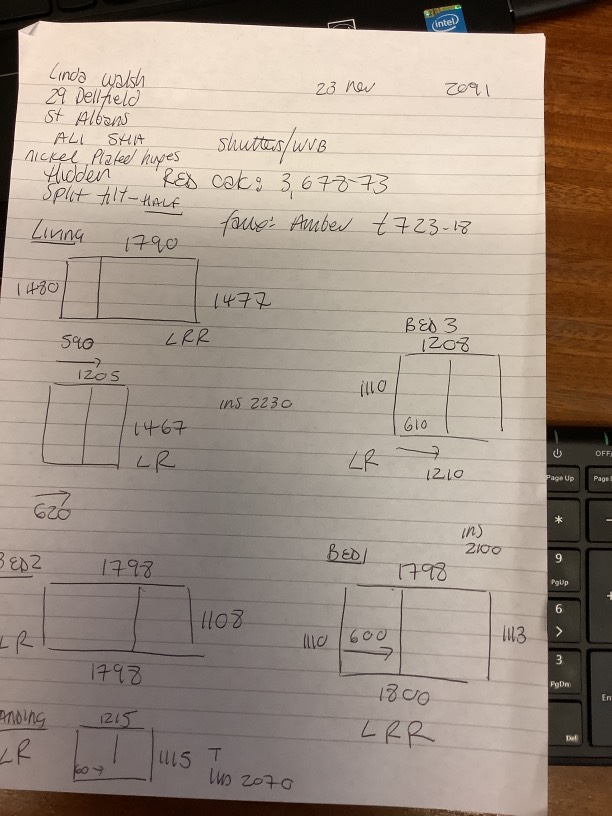 intel
Linda Walsh
23 Nov 2091
29 Dellfield
St Albans
ALI SHA
Shutters/WVB
Nickel Plated hinges
Hidden
RED oak: 3,678-73
Split tilt-HALF
faux: Amber £723-18
Living
1790
1480
1477
LRR
590
BED 3
1208
1110
610
LR
1210
1205
ins 2230
1467
LR
620
BED2
1798
1108
LR
1798
BED1
ins
2100
1798
1110
600
1113
1800
LRR
ANDING
1215
LR
60
1115
T
ins 2070
Page Up
*
9
PgUp
6
>
3
PgDn
Del